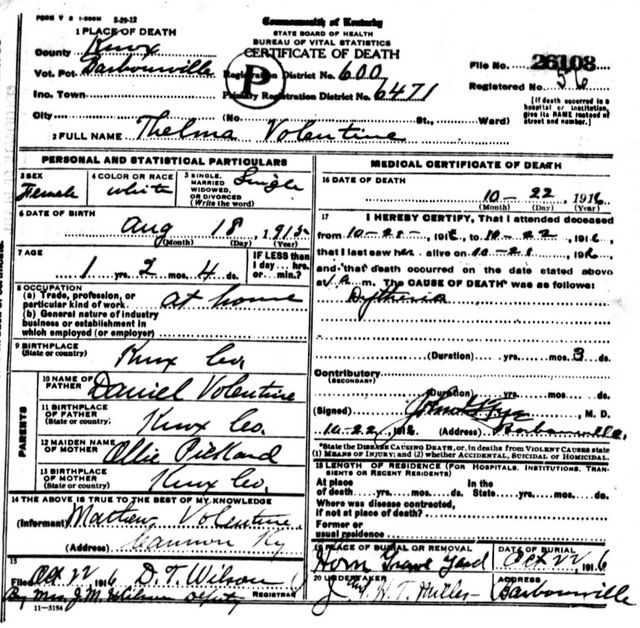 FORM V S 1-500M 2-29-12
Commonwealth of Kentucky
STATE BOARD OF HEALTH
BUREAU OF VITAL STATISTICS
CERTIFICATE OF DEATH
1 PLACE OF DEATH
County Knox
Vot. Pct. Barbourville
Inc. Town
City
P
Registration District No. 600
Primary Registration District No. 6471
(No. St., Ward)
File No. 26108
Registered No. 56
[If death occurred in a
hospital or institution,
give its NAME instead of
street and number.]
2 FULL NAME Thelma Volentine
PERSONAL AND STATISTICAL PARTICULARS
3 SEX
Female
4 COLOR OR RACE
white
5 SINGLE,
MARRIED
WIDOWED,
OR DIVORCED
(Write the word)
Single
6 DATE OF BIRTH
Aug 18, 1915
(Month) (Day) (Year)
7 AGE
1 yrs. 2 mos. 4 ds.
IF LESS than
1 day... hrs.
or ... min.?
8 OCCUPATION
(a) Trade, profession, or
particular kind of work at home
(b) General nature of industry
business or establishment in
which employed (or employer)
9 BIRTHPLACE
(State or country)
Knox Co.
PARENTS
10 NAME OF
FATHER
Daniel Volentine
11 BIRTHPLACE
OF FATHER
(State or country)
Knox Co.
12 MAIDEN NAME
OF MOTHER
Ollie
13 BIRTHPLACE
OF MOTHER
(State or country)
Knox Co.
14 THE ABOVE IS TRUE TO THE BEST OF MY KNOWLEDGE
(Informant) Mathew Volentine
(Address) Cannon Ky
15
Filed Oct 22, 1916 D. T. Wilson
REGISTRAR
By Mrs. J.M. Wilson Deputy
11-3184
MEDICAL CERTIFICATE OF DEATH
16 DATE OF DEATH
10-22, 1916
(Month) (Day) (Year)
17 I HEREBY CERTIFY, That I attended deceased
from 10-, 191 to 10-22, 191
that I last saw her alive on 10-, 191
and that death occurred on the date stated above
at m. The CAUSE OF DEATH* was as follows:
(Duration) yrs. mos. 3 ds.
Contributory
(SECONDARY)
(Duration) yrs. mos. ds.
(Signed) , M. D.
10-22, 191 (Address) Barbourville
*State the DISEASE CAUSING DEATH, or, in deaths from VIOLENT CAUSES state
(1) MEANS OF INJURY; and (2) whether ACCIDENTAL, SUICIDAL or HOMICIDAL.
18 LENGTH OF RESIDENCE (FOR HOSPITALS, INSTITUTIONS, TRAN-
SIENTS OR RECENT RESIDENTS)
At place
of death yrs. mos. ds.
In the
State yrs. mos. ds.
Where was disease contracted,
if not at place of death?
Former or
usual residence
19 PLACE OF BURIAL OR REMOVAL
Horn Grave Yard
DATE OF BURIAL
Oct 22 1916
20 UNDERTAKER
W. T.
ADDRESS
Barbourville